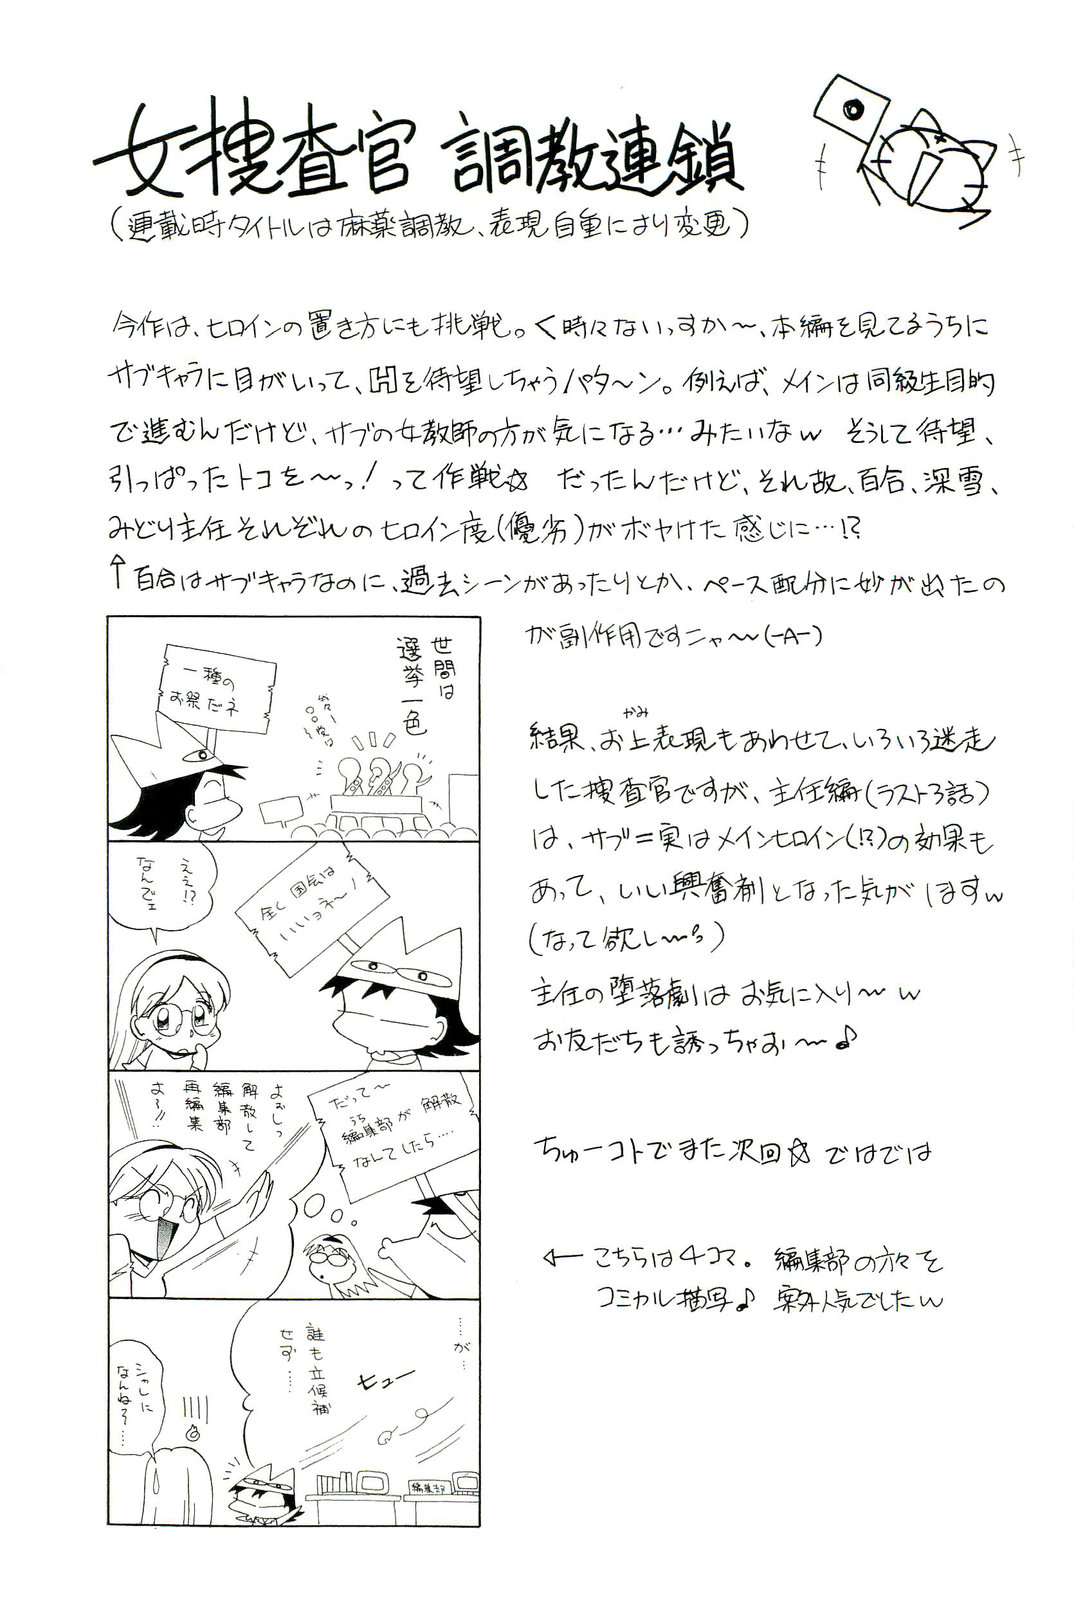 女捜査官 調教連鎖
(連載時タイトルは麻薬調教、表現自重により変更)
今作は、ヒロインの置き方にも挑戦。く時々ないっすか〜、本編を見てるうちに
サブキャラに目がいって、Hを待望しちゃうパタ〜ン。例えば、メインは同級生目的
で進むんだけど、サブの女教師の方が気になる…みたいなw そうして待望、
引っぱったトコを〜っ!って作戦☆ だったんだけど、それ故、百合、深雪、
みどり主任それぞれのヒロイン度(優劣)がボヤけた感じに…!?
↑百合はサブキャラなのに、過去シーンがあったりとか、ペース配分に妙が出たの
が副作用ですニャ〜(-A-)
結果、お上表現もあわせて、いろいろ迷走
かみ
した捜査官ですが、主任編(ラスト3話)
は、サブ=実はメインヒロイン(!?)の効果も
あって、いい興奮剤となった気がしますw
(なって欲し〜)
主任の堕落劇はお気に入り〜w
お友だちも誘っちゃお〜♪
ちゅーコトでまた次回☆ ではでは
← こちらは4コマ。編集部の方々を
コミカル描写♪ 案外人気でしたw
世間は
選挙一色
一種の
お祭だネ
ええ!?
なんでェ
全く国気は
いいョネ〜!
だって〜
うち
編集部が解散
なんてしたら…
よぉしっ
解散して
編集部
再編集
よ〜!!
……が…
誰も立候補
せず……
ヒュー
編集部
シャレに
なんね〜……